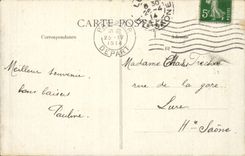 CARTE POSTALE
Correspondance
DÉPART
1914
5c
Meilleur souvenir
bons baisers
Pauline
Madame Chas
rue de la gare
Lure
Hte Saône